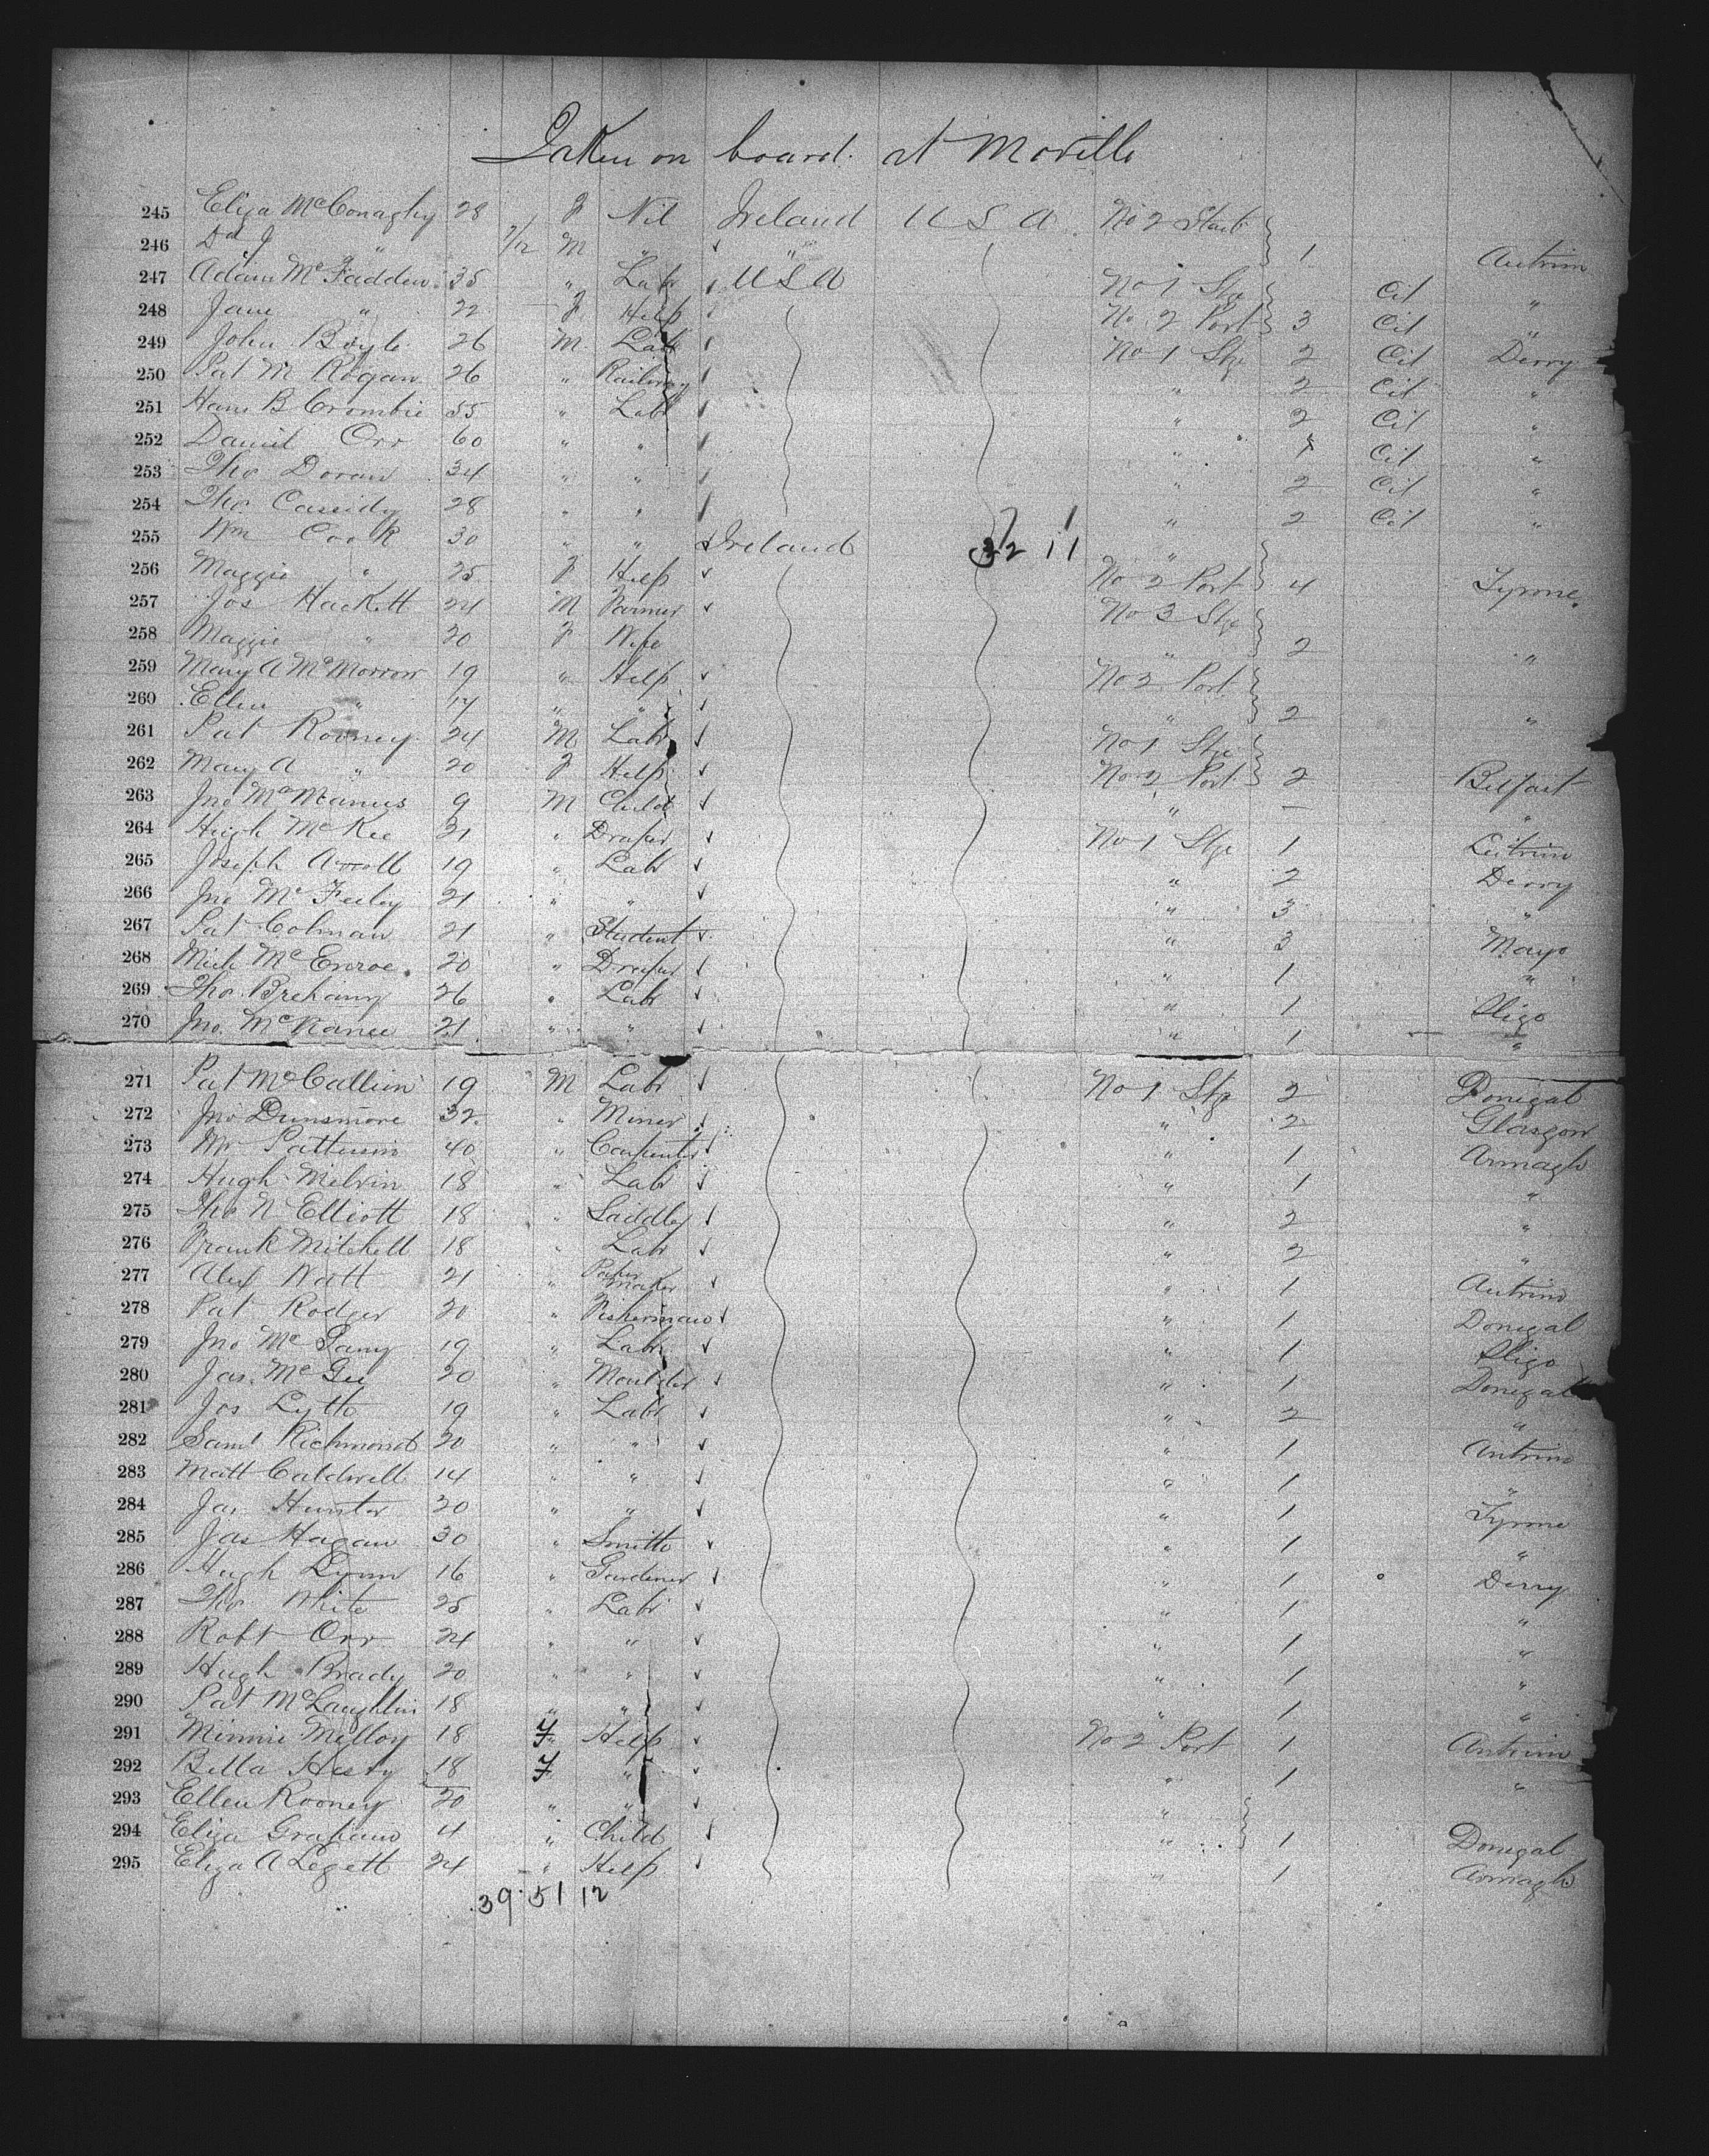 Taken on board at Moville
245 Eliza McConaghy 28 F Nil Ireland U S A No 2 Starb
246 Dd J " 7/12 M " " 1 Antrim
247 Adam McFadden 35 " Labr U S A No 1 Stge Cit "
248 Jane " 22 F Help No 2 Port 3 Cit "
249 John Boyle 26 M Labr No 1 Stge 2 Cit Derry
250 Pat M Rogan 26 " Railway " 2 Cit "
251 Hans B Crombie 55 " Labr " 2 Cit "
252 Daniel Orr 60 " " " Cit "
253 Tho Doran 34 " " " 2 Cit "
254 Tho Cassidy 28 " " " 2 Cit "
255 Wm Cook 30 " " Ireland 32 11 "
256 Maggie " 25 F Help No 2 Port 4 Tyrone
257 Jos Hackett 24 M Farmer No 3 Stge
258 Maggie " 20 F Wife " 2 "
259 Mary A McMorrow 19 " Help No 2 Port
260 Ellen " 17 " " " 2 "
261 Pat Rooney 24 M Labr No 1 Stge
262 Mary A " 20 F Help No 2 Port 2 Belfast
263 Jno McManus 9 M Child " – "
264 Hugh McKee 31 " Draper No 1 Stge 1 Leitrim
265 Joseph 19 " Labr " 2 Derry
266 Jno McFeeley 21 " " " 3 "
267 Pat Colman 21 " Student " 3 Mayo
268 Mich McEnroe 20 " Draper " 1 "
269 Tho Brehany 26 " Labr " 1 Sligo
270 Jno. McKanee 21 " " " 1 "
271 Pat McCallion 19 M Labr No 1 Stge 2 Donegal
272 Jno Dunsmore 32 " Miner " 2 Glasgow
273 Wm Patterson 40 " Carpenter " 1 Armagh
274 Hugh Melvin 18 " Labr " 1 "
275 Tho N Elliott 18 " Saddler " 2 "
276 Frank Mitchell 18 " Labr " 2 "
277 Alex Watt 21 " Paper maker " 1 Antrim
278 Pat Rodger 20 " Fisherman " 1 Donegal
279 Jno Mc 19 " Labr " 1 Sligo
280 Jas. McGee 20 " Moulder " 1 Donegal
281 Jos Lytle 19 " Labr " 2 "
282 Saml Richmond 20 " " " 1 Antrim
283 Matt Caldwell 14 " " " 1 "
284 Jas Hunter 20 " " " 1 Tyrone
285 Jas Hagan 30 " Smith " 1 "
286 Hugh Lynn 16 " Gardener " 1 Derry
287 Tho White 25 " Labr " 1 "
288 Robt Orr 24 " " " 1 "
289 Hugh Brady 20 " " " 1 "
290 Pat McLaughlin 18 " " " 1 "
291 Minnie Melloy 18 F Help No 2 Port 1 Antrim
292 Bella 18 F " " 1 "
293 Ellen Rooney 20 " " "
294 Eliza Graham 4 " Child " 1 Donegal
295 Eliza A Legett 24 " Help " 1 Armagh
39 51 12